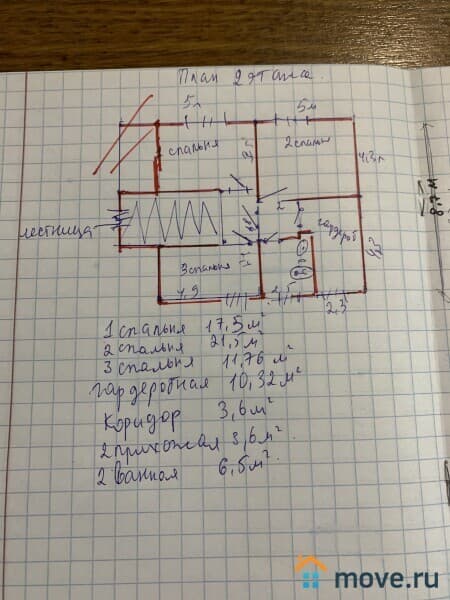 План 2 этажа.
5м 5м
спальня 2 спальня 4,3м
2
лестница гардероб
3 спальня
4,9 4,5 2,3
1 спальня 17,5 м²
2 спальня 21,5 м²
3 спальня 11,76 м²
гардеробная 10,32 м²
Коридор 3,6 м²
2 прихожая 3,6 м²
2 ванная 6,5 м²
move.ru